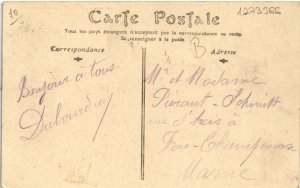 10
1273966
Carte Postale
Tous les pays étrangers n'acceptent pas la correspondance au recto.
Se renseigner à la poste.
B
Correspondance
Adresse
Bonjour à tous
Dubourdieu
Mr et Madame
Schmitt
rue à
Fère-Champenoise
Marne